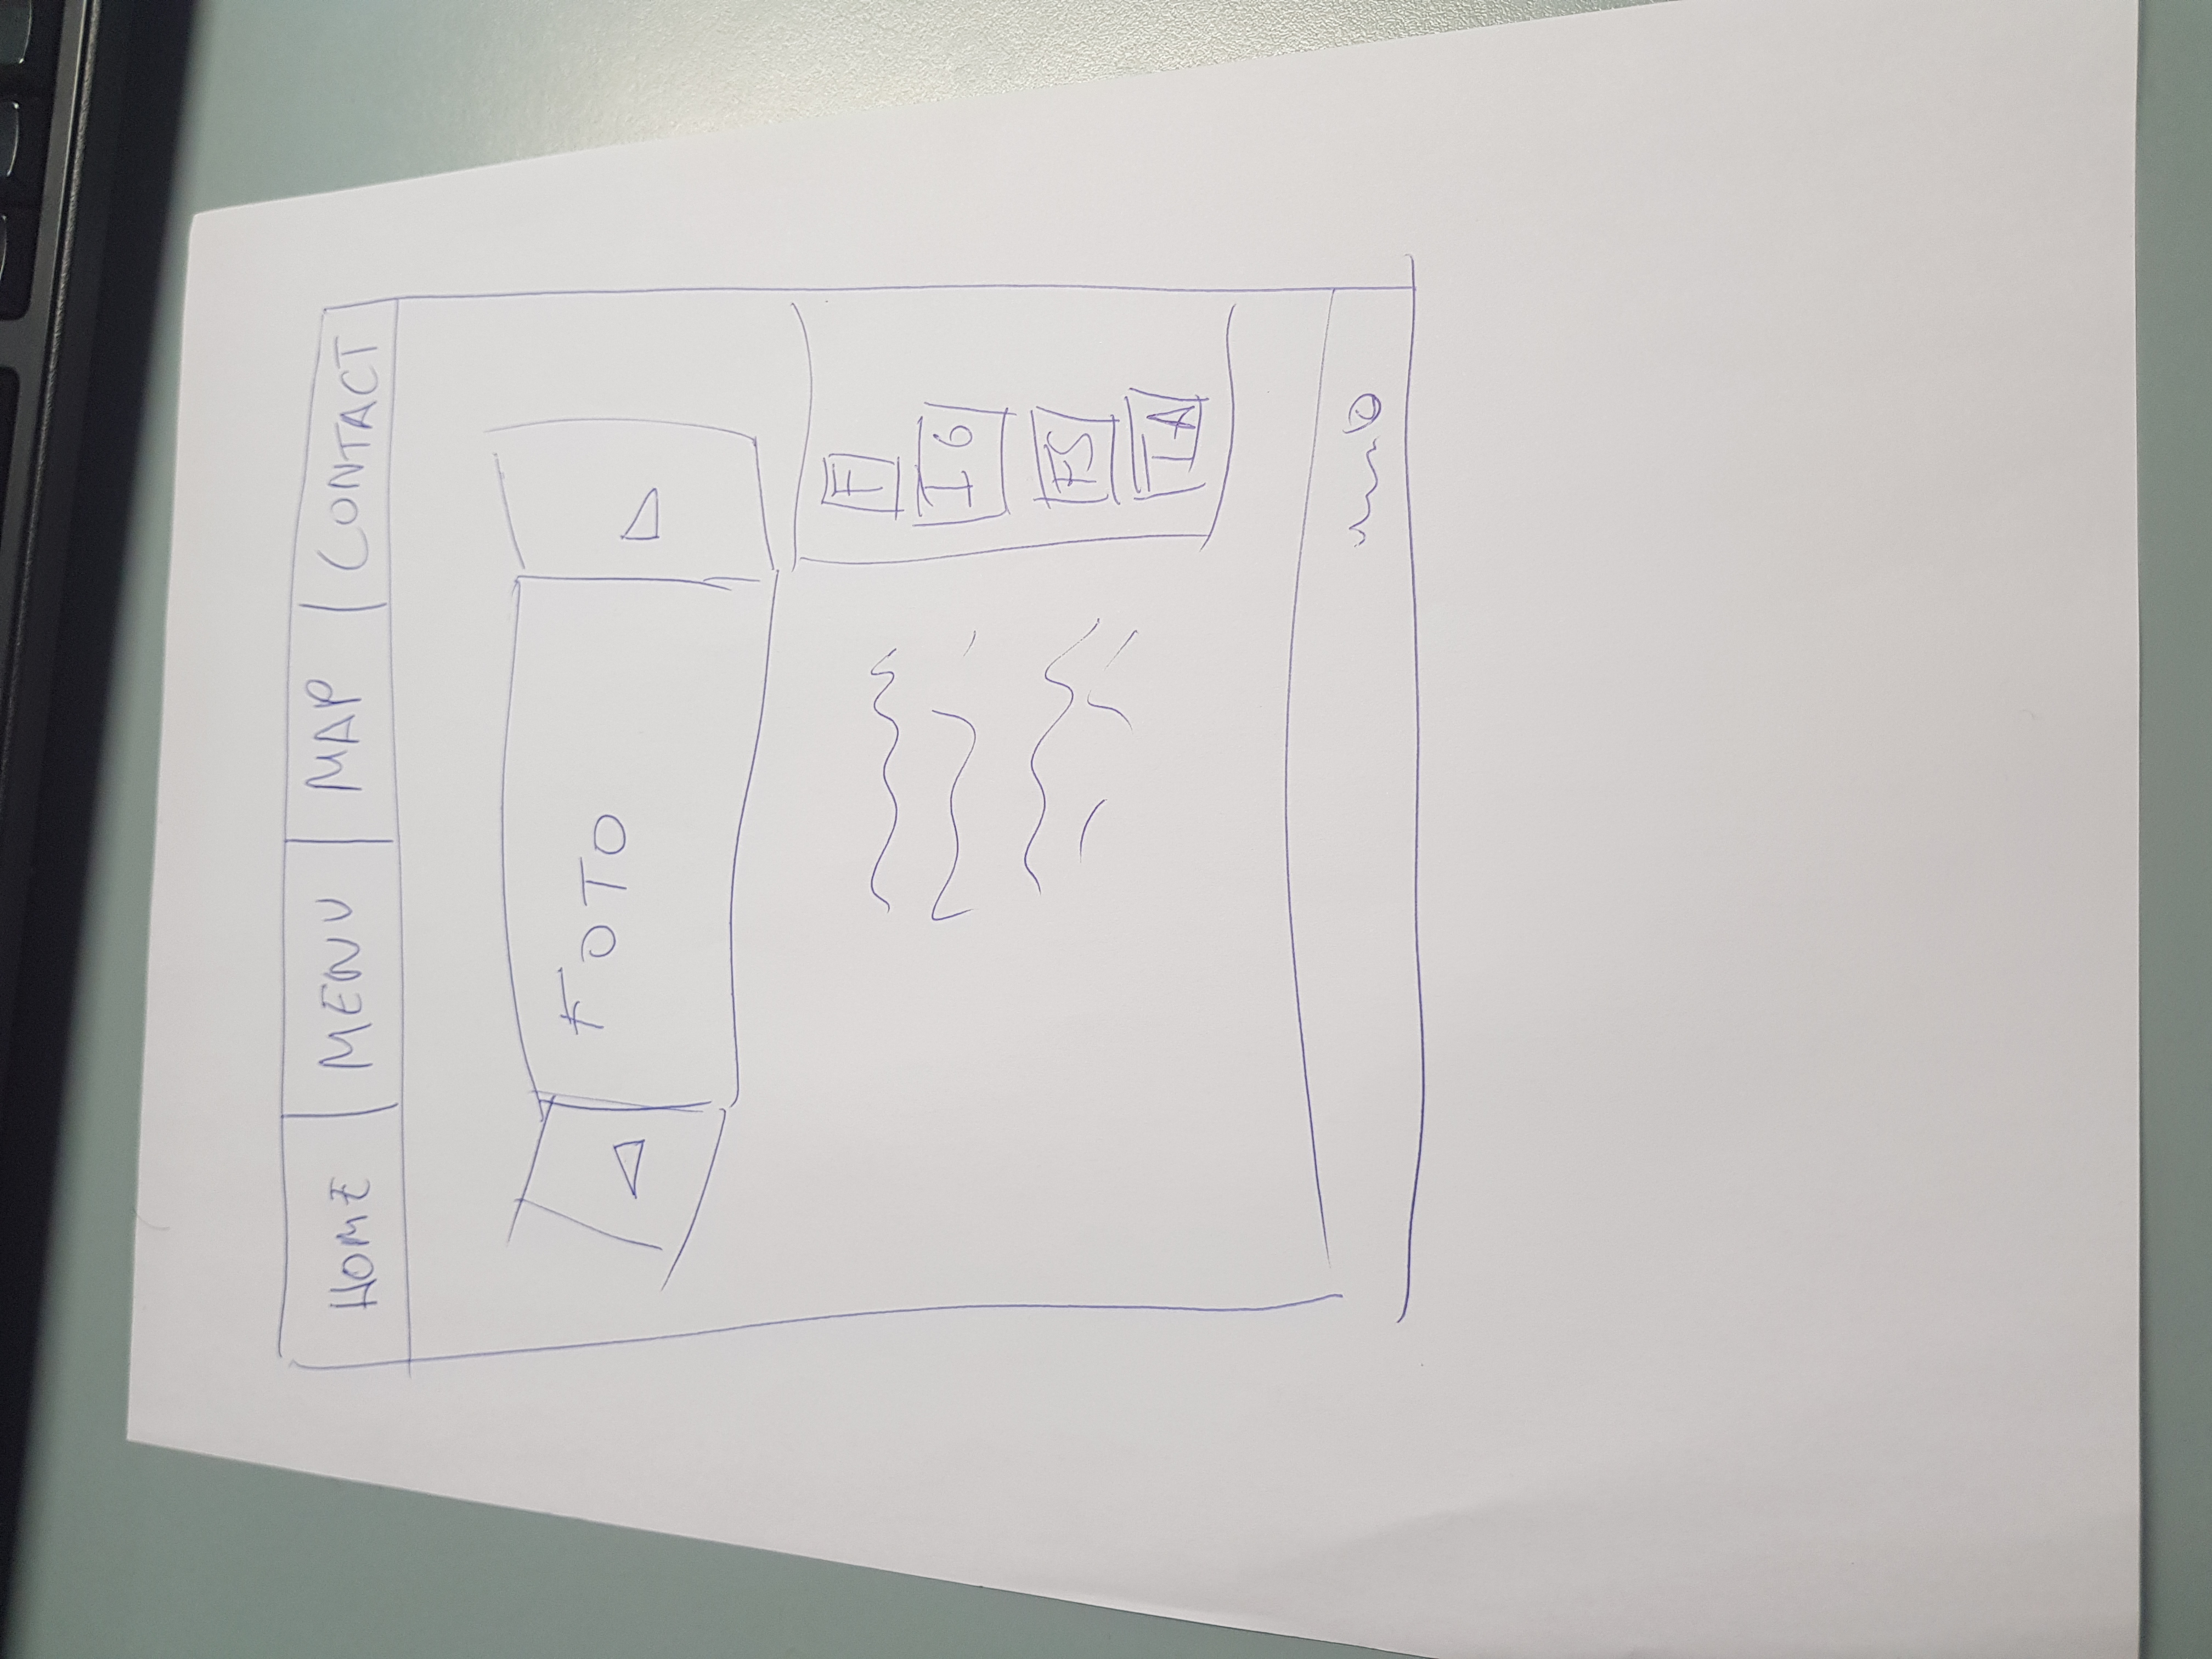 HOME MENU MAP CONTACT
FOTO
F
IG
FS
TA